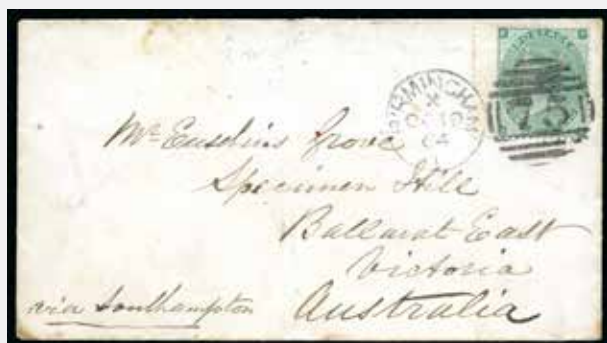 BIRMINGHAM
X
OC 19
64
75
Mr. Eusebius Grove
Specimen Hill
Ballarat East
Victoria
Australia
via Southampton